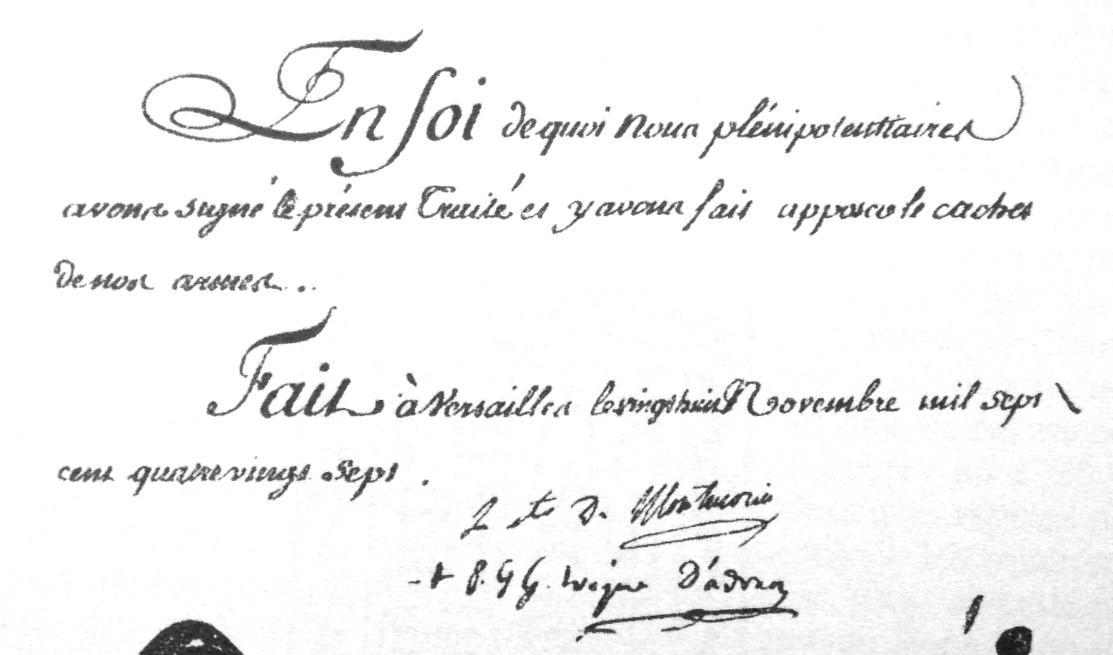 En foi de quoi Nous plénipotentiaires
avons signé le présent Traité et y avons fait apposer le cachet
De nos armes..
Fait à Versailles le vingt huit Novembre mil sept
cent quatrevingt sept.
L cte De Montmorin
+ P. G G. évêque D'adran